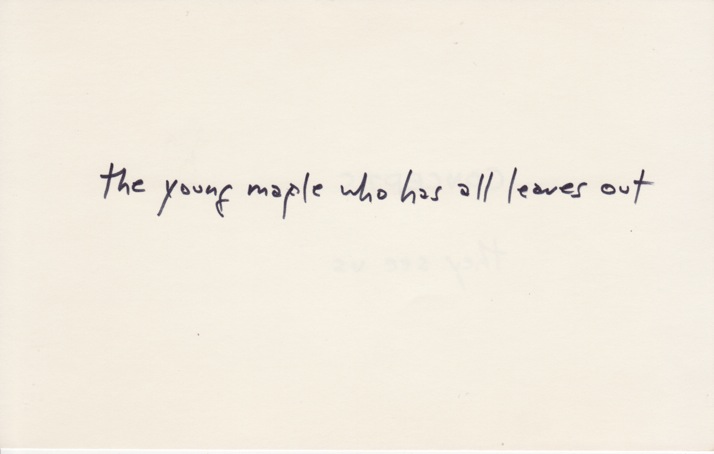 the young maple who has all leaves out